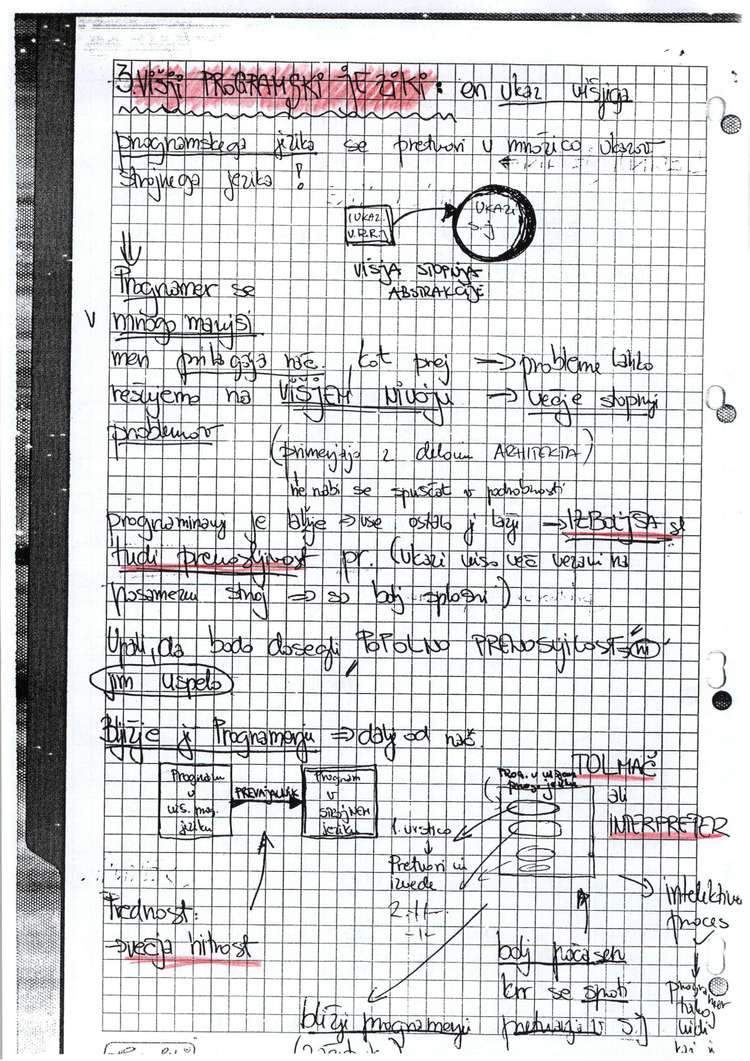 3. VIŠJI PROGRAMSKI JEZIKI: en ukaz višjega
programskega jezika se pretvori v množico ukazov
strojnega jezika!
UKAZ
V.P.J.
UKAZI
S.J
VIŠJA STOPNJA
ABSTRAKCIJE
Programer se
mnogo manjši
meri prilagaja rač. kot prej → probleme lahko
rešujemo na VIŠJEM NIVOJU → večje stopnji
problemov (primerjaja z delom ARHITEKTA)
ne rabi se spuščat v podrobnosti
programiranj je lažje ⇒ vse ostalo j lažji → IZBOLJŠA se
tudi prenosljivost pr. (ukazi niso več vezani na
posamezni stroj ⇒ so bolj splošni)
Upali, da bodo dosegli POPOLNO PRENOSLJIVOST = ni
jim uspelo
Bližje j Programerju ⇒ dalj od rač.
Program
v
viš. prog.
jeziku
PREVAJALNIK
Program
v
STROJNEM
jeziku
TOLMAČ
ali
INTERPRETER
1. vrstico
↓
Pretvori in
izvede
2. -11-
-1-
Prednost:
⇒ večja hitrost
proces
bolj počasen
ker se sproti
pretvarja v S.J
bližji programerju